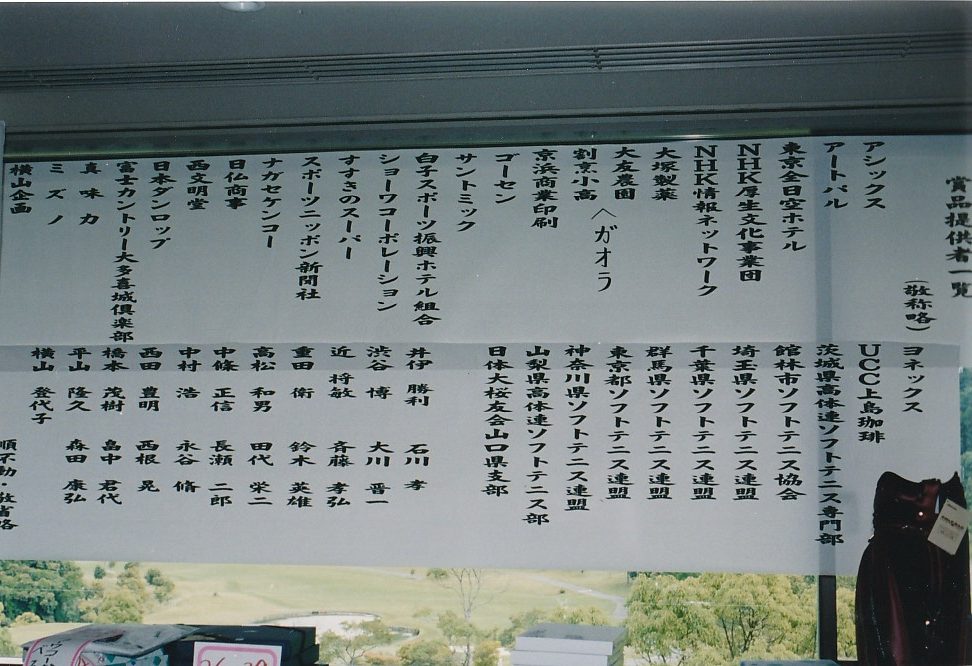 賞品提供者一覧
(敬称略)
アシックス
アートパル
東京全日空ホテル
NHK厚生文化事業団
NHK情報ネットワーク
大塚製薬
大友農園
割烹小高
へガオラ
京浜商業印刷
ゴーセン
サントミック
白子スポーツ振興ホテル組合
ショーワコーポレーション
すすきのスーパー
スポーツニッポン新聞社
ナガセケンコー
日仏商事
西文明堂
日本ダンロップ
富士カントリー大多喜城倶楽部
真味力
ミズノ
横山企画
ヨネックス
UCC上島珈琲
茨城県高体連ソフトテニス専門部
館林市ソフトテニス協会
埼玉県ソフトテニス連盟
千葉県ソフトテニス連盟
群馬県ソフトテニス連盟
東京都ソフトテニス連盟
神奈川県ソフトテニス連盟
山梨県高体連ソフトテニス部
日体大桜友会山口県支部
井伊 勝利 石川 孝
渋谷 博 大川 晋一
近 将敏 斉藤 孝弘
重田 衛 鈴木 英雄
高松 和男 田代 栄二
中條 正信 長瀬 二郎
中村 浩 永谷 脩
西田 豊明 西根 晃
橋本 茂樹 畠中 君代
平山 隆久 森田 康弘
横山 登代子
順不動・敬省略